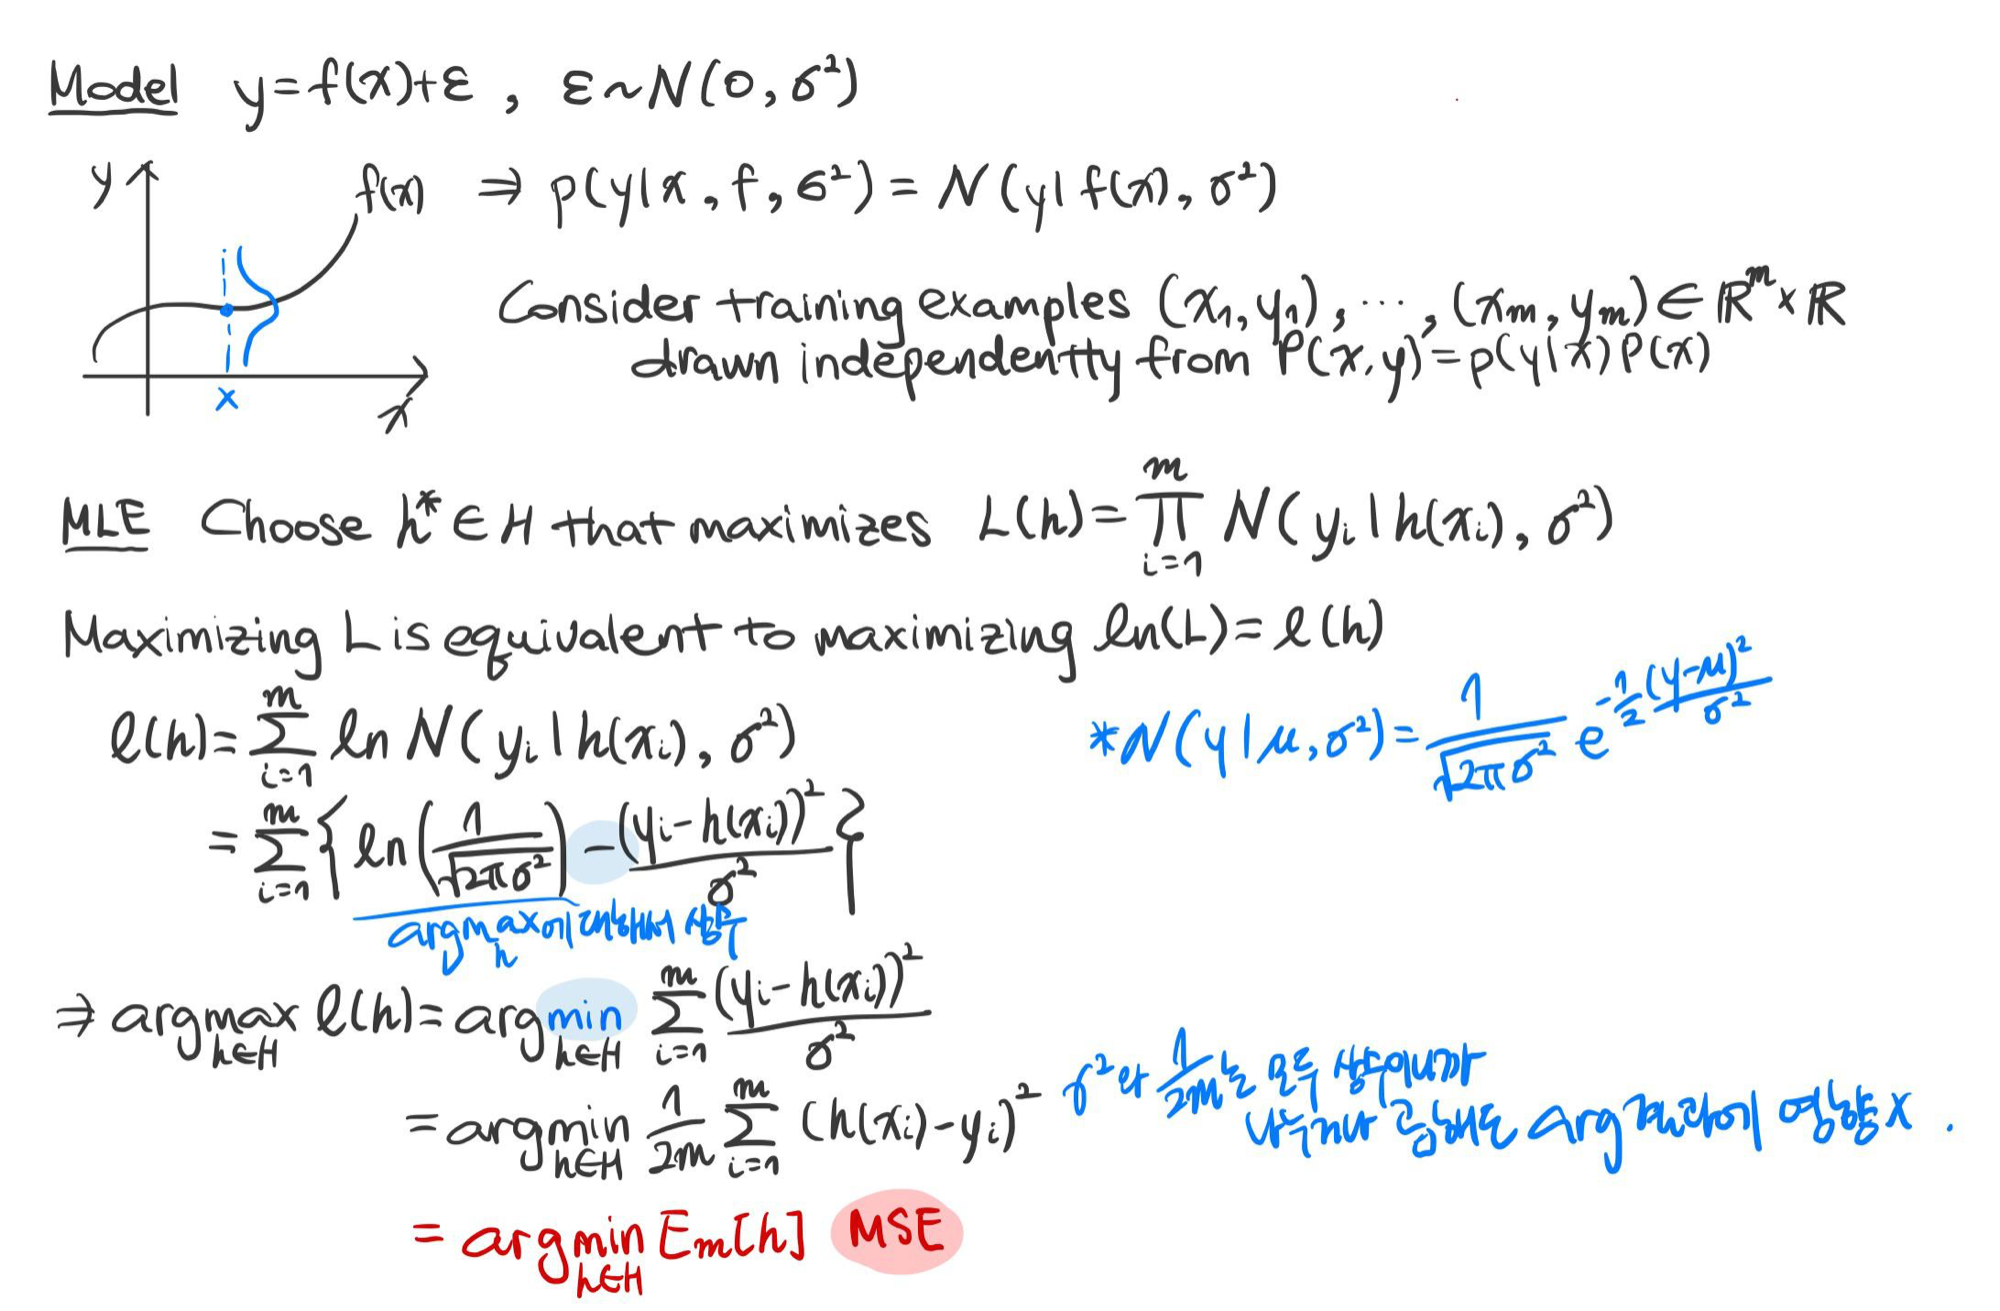 Model y=f(x)+ε , ε~N(0,σ²)
y
f(x) ⇒ p(y|x, f, σ²) = N(y|f(x), σ²)
x
x
Consider training examples (x₁,y₁), ⋯, (xₘ,yₘ) ∈ ℝᵐ×ℝ
drawn independentty from P(x,y)=p(y|x)P(x)
MLE Choose h* ∈ H that maximizes L(h)= ∏_{i=1}^{m} N(yᵢ|h(xᵢ), σ²)
Maximizing L is equivalent to maximizing ln(L)=ℓ(h)
ℓ(h)= ∑_{i=1}^{m} ln N(yᵢ|h(xᵢ), σ²)
*N(y|μ,σ²)= 1/√(2πσ²) e^{-1/2 (y-μ)²/σ²}
= ∑_{i=1}^{m} { ln(1/√(2πσ²)) - (yᵢ-h(xᵢ))²/σ² }
argmax_h에 대해서 상수
⇒ argmax_{h∈H} ℓ(h)= argmin_{h∈H} ∑_{i=1}^{m} (yᵢ-h(xᵢ))²/σ²
= argmin_{h∈H} 1/2m ∑_{i=1}^{m} (h(xᵢ)-yᵢ)²
σ²와 1/2m는 모두 상수이니까
나누거나 곱해도 arg 결과에 영향 x .
= argmin_{h∈H} Em[h] MSE